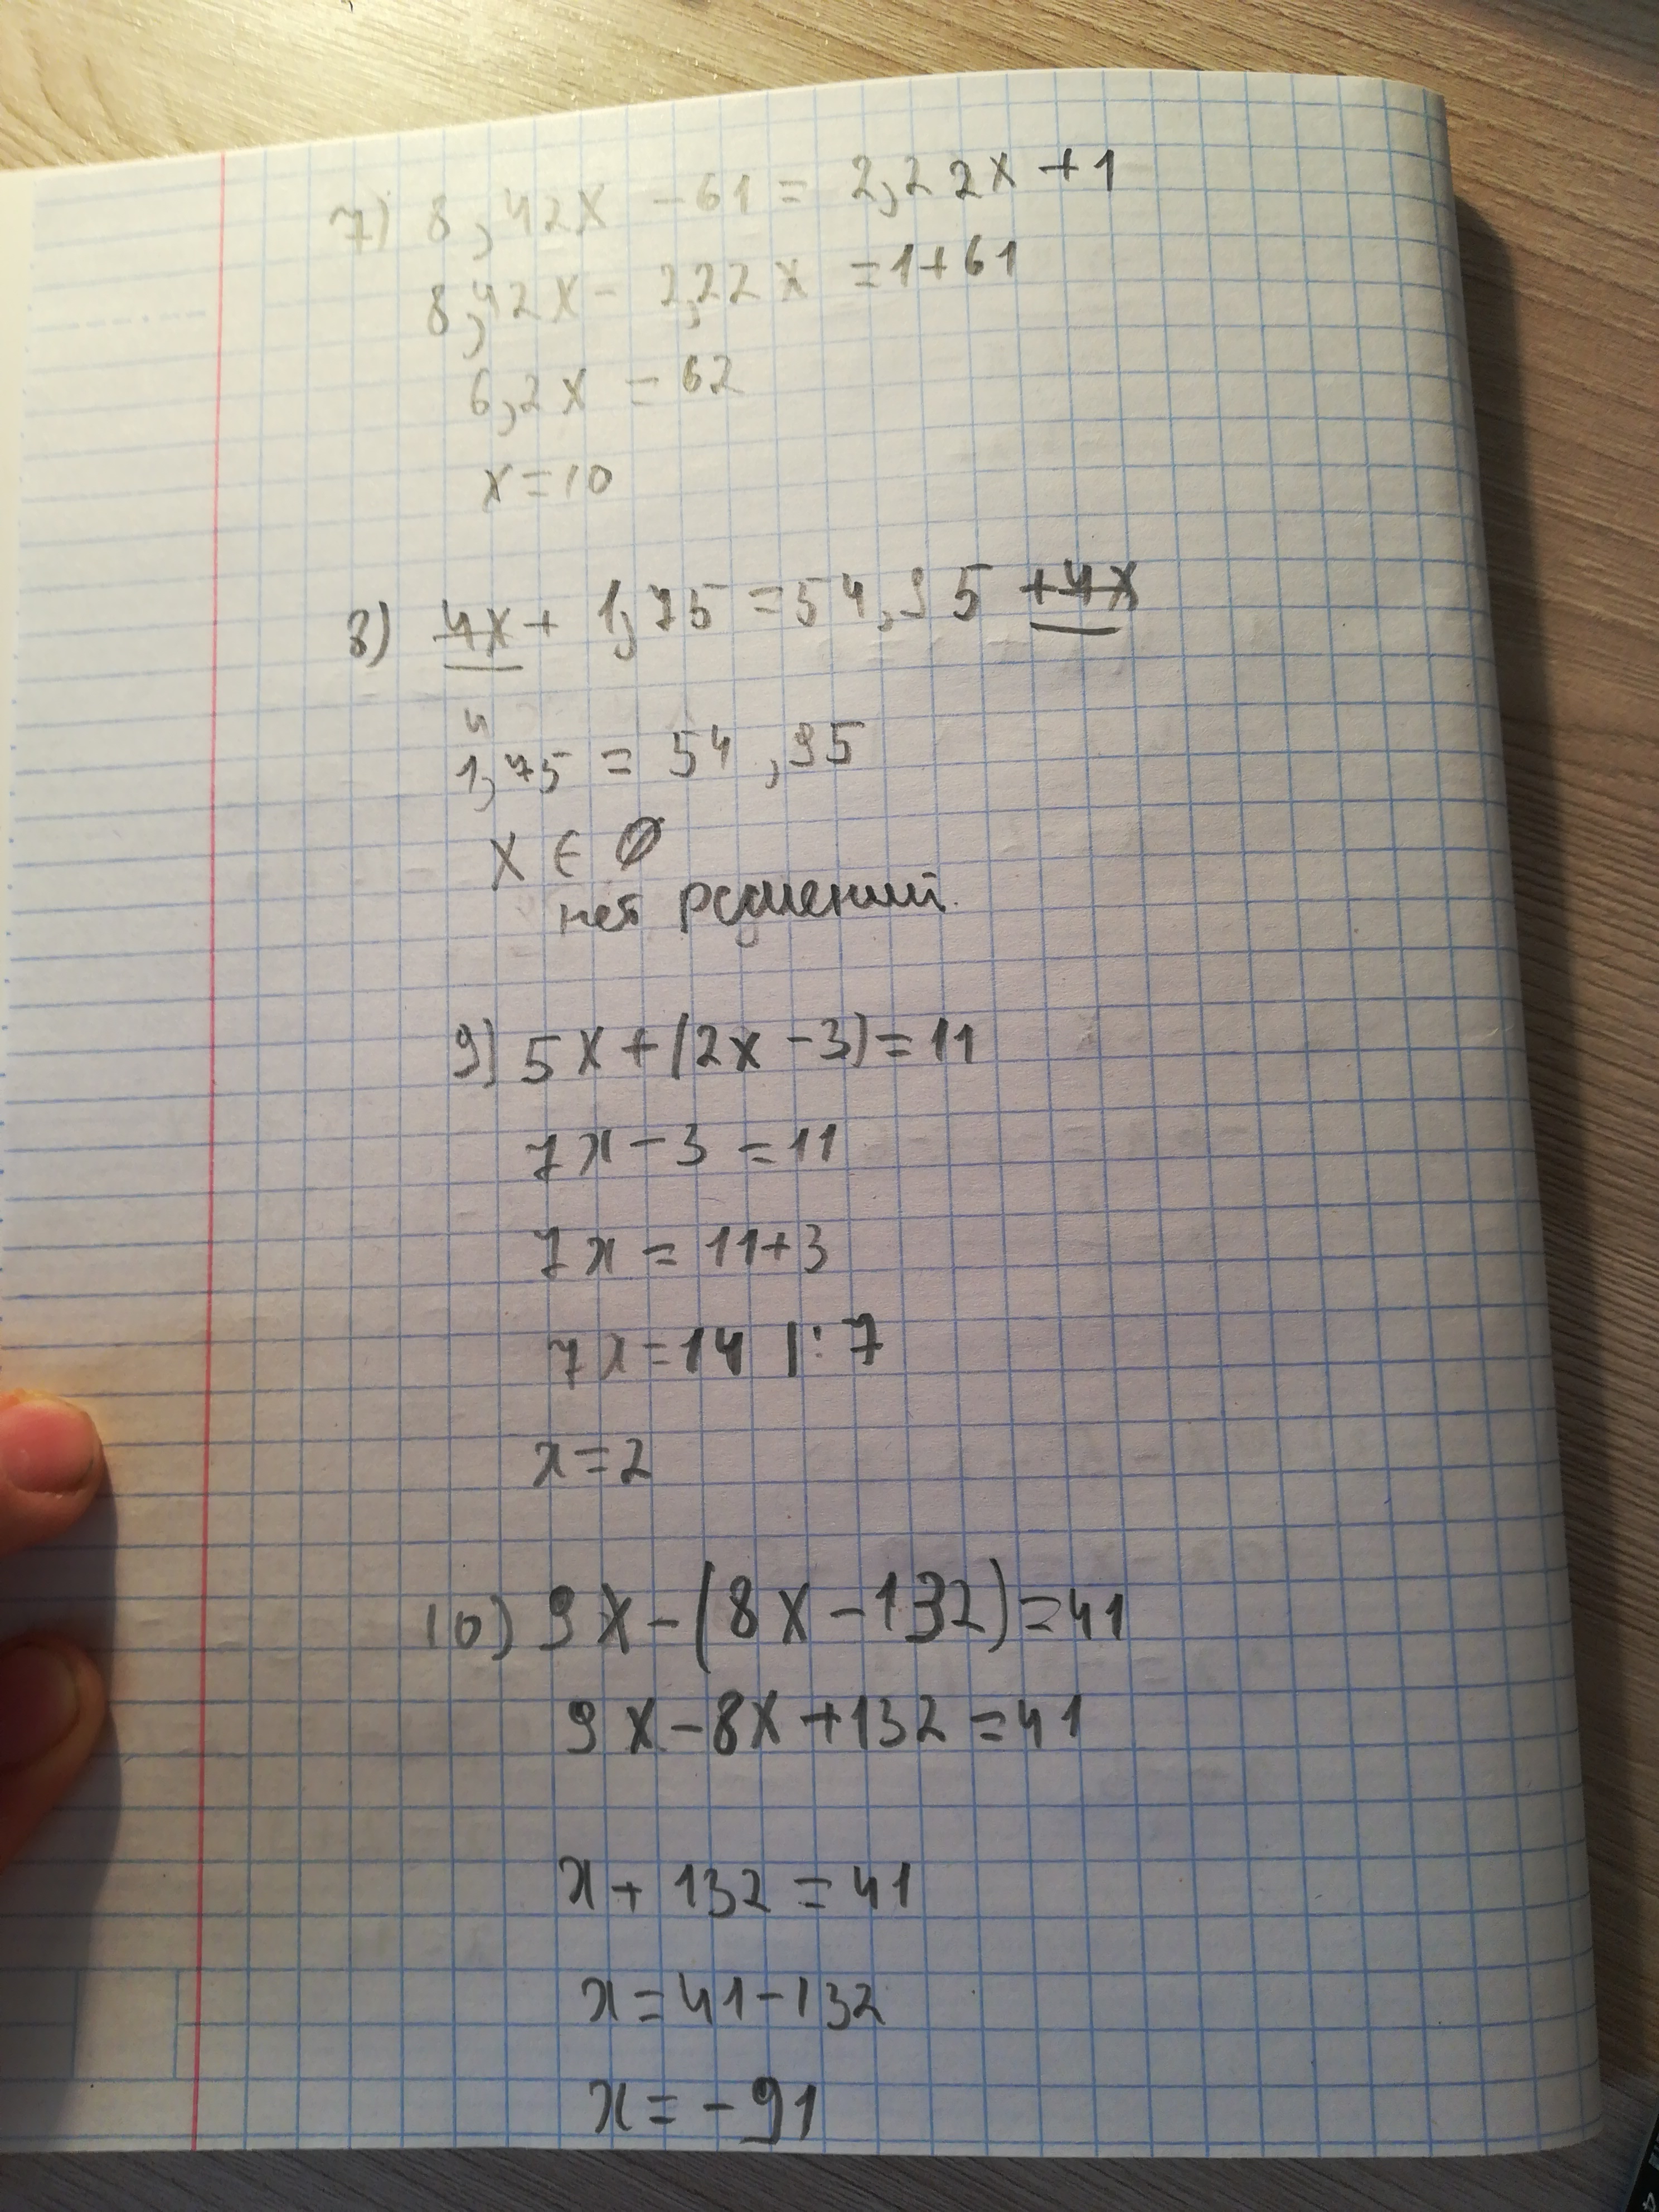 7) 8,42x - 61 = 2,22x + 1
8,42x - 2,22x = 1 + 61
6,2x = 62
x = 10
8) 4x + 1,75 = 54,95 + 4x
4
1,75 = 54,95
x ∈ ∅
нет решений
9) 5x + (2x - 3) = 11
7x - 3 = 11
7x = 11 + 3
7x = 14 | : 7
x = 2
10) 9x - (8x - 132) = 41
9x - 8x + 132 = 41
x + 132 = 41
x = 41 - 132
x = - 91